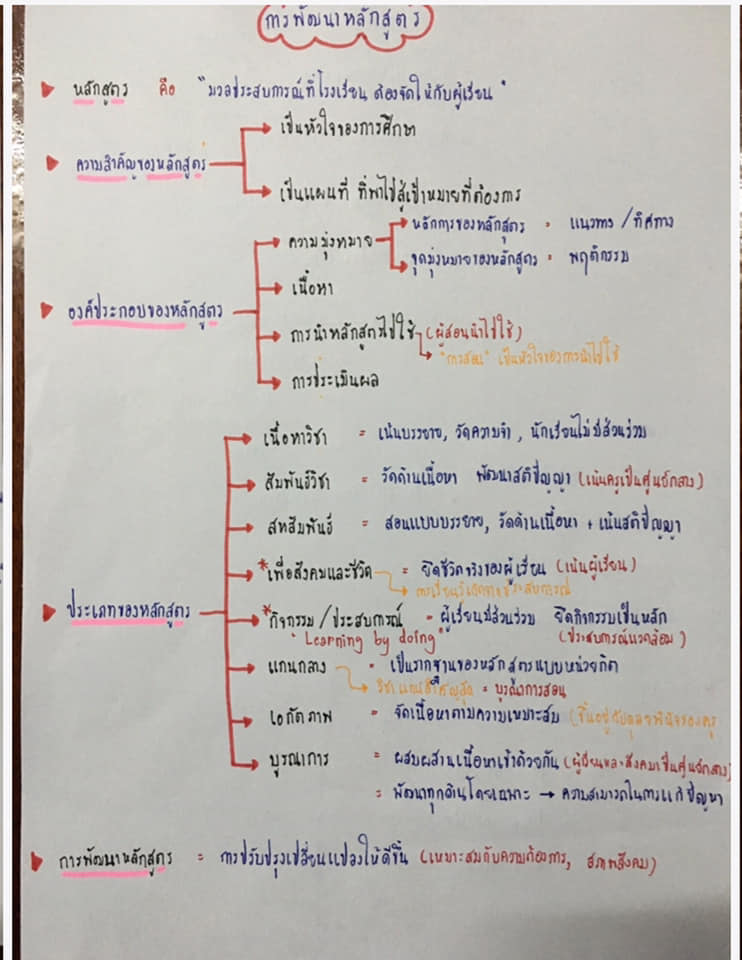 การพัฒนาหลักสูตร
หลักสูตร คือ "มวลประสบการณ์ที่โรงเรียน ต้องจัดให้กับผู้เรียน"
ความสำคัญของหลักสูตร
เป็นหัวใจของการศึกษา
เป็นแผนที่ ที่พาไปสู่เป้าหมายที่ต้องการ
องค์ประกอบของหลักสูตร
ความมุ่งหมาย
หลักการของหลักสูตร = แนวทาง / ทิศทาง
จุดมุ่งหมายของหลักสูตร = พฤติกรรม
เนื้อหา
การนำหลักสูตรไปใช้ (ผู้สอนนำไปใช้)
"การสอน" เป็นหัวใจของการนำไปใช้
การประเมินผล
ประเภทของหลักสูตร
เนื้อหาวิชา = เน้นบรรยาย, วัดความจำ, นักเรียนไม่มีส่วนร่วม
สัมพันธ์วิชา = วัดด้านเนื้อหา พัฒนาสติปัญญา (เน้นครูเป็นศูนย์กลาง)
สหสัมพันธ์ = สอนแบบบรรยาย, วัดด้านเนื้อหา + เน้นสติปัญญา
*เพื่อสังคมและชีวิต = ยึดชีวิตจริงของผู้เรียน (เน้นผู้เรียน)
*กิจกรรม / ประสบการณ์ = ผู้เรียนมีส่วนร่วม ยึดกิจกรรมเป็นหลัก
"Learning by doing" (ประสบการณ์แวดล้อม)
แกนกลาง = เป็นรากฐานของหลักสูตรแบบหน่วยกิต
= บูรณาการสอน
เอกัตภาพ = จัดเนื้อหาตามความเหมาะสม (ขึ้นอยู่กับดุลยพินิจของครู
บูรณาการ = ผสมผสานเนื้อหาเข้าด้วยกัน (ผู้เรียนและสังคมเป็นศูนย์กลาง)
= พัฒนาทุกด้านโดยเฉพาะ → ความสามารถในการแก้ปัญหา
การพัฒนาหลักสูตร = การปรับปรุงเปลี่ยนแปลงให้ดีขึ้น (เหมาะสมกับความต้องการ, สภาพสังคม)